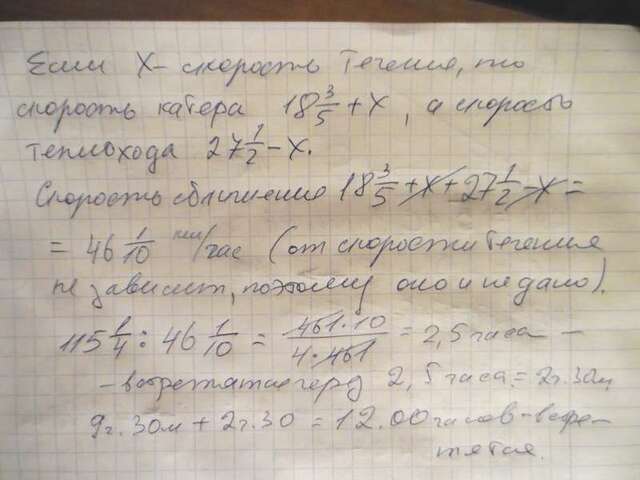 Если X - скорость течения, то
скорость катера 18 3/5 + X, а скорость
теплохода 27 1/2 - X.
Скорость сближения 18 3/5 + X + 27 1/2 - X =
= 46 1/10 км/час (от скорости течения
не зависит, поэтому оно и не дано).
115 1/4 : 46 1/10 = 461·10/4·461 = 2,5 часа -
- встретятся через 2,5 часа = 2ч.30м
9ч.30м + 2ч.30 = 12.00 часов - встре-
тятся.